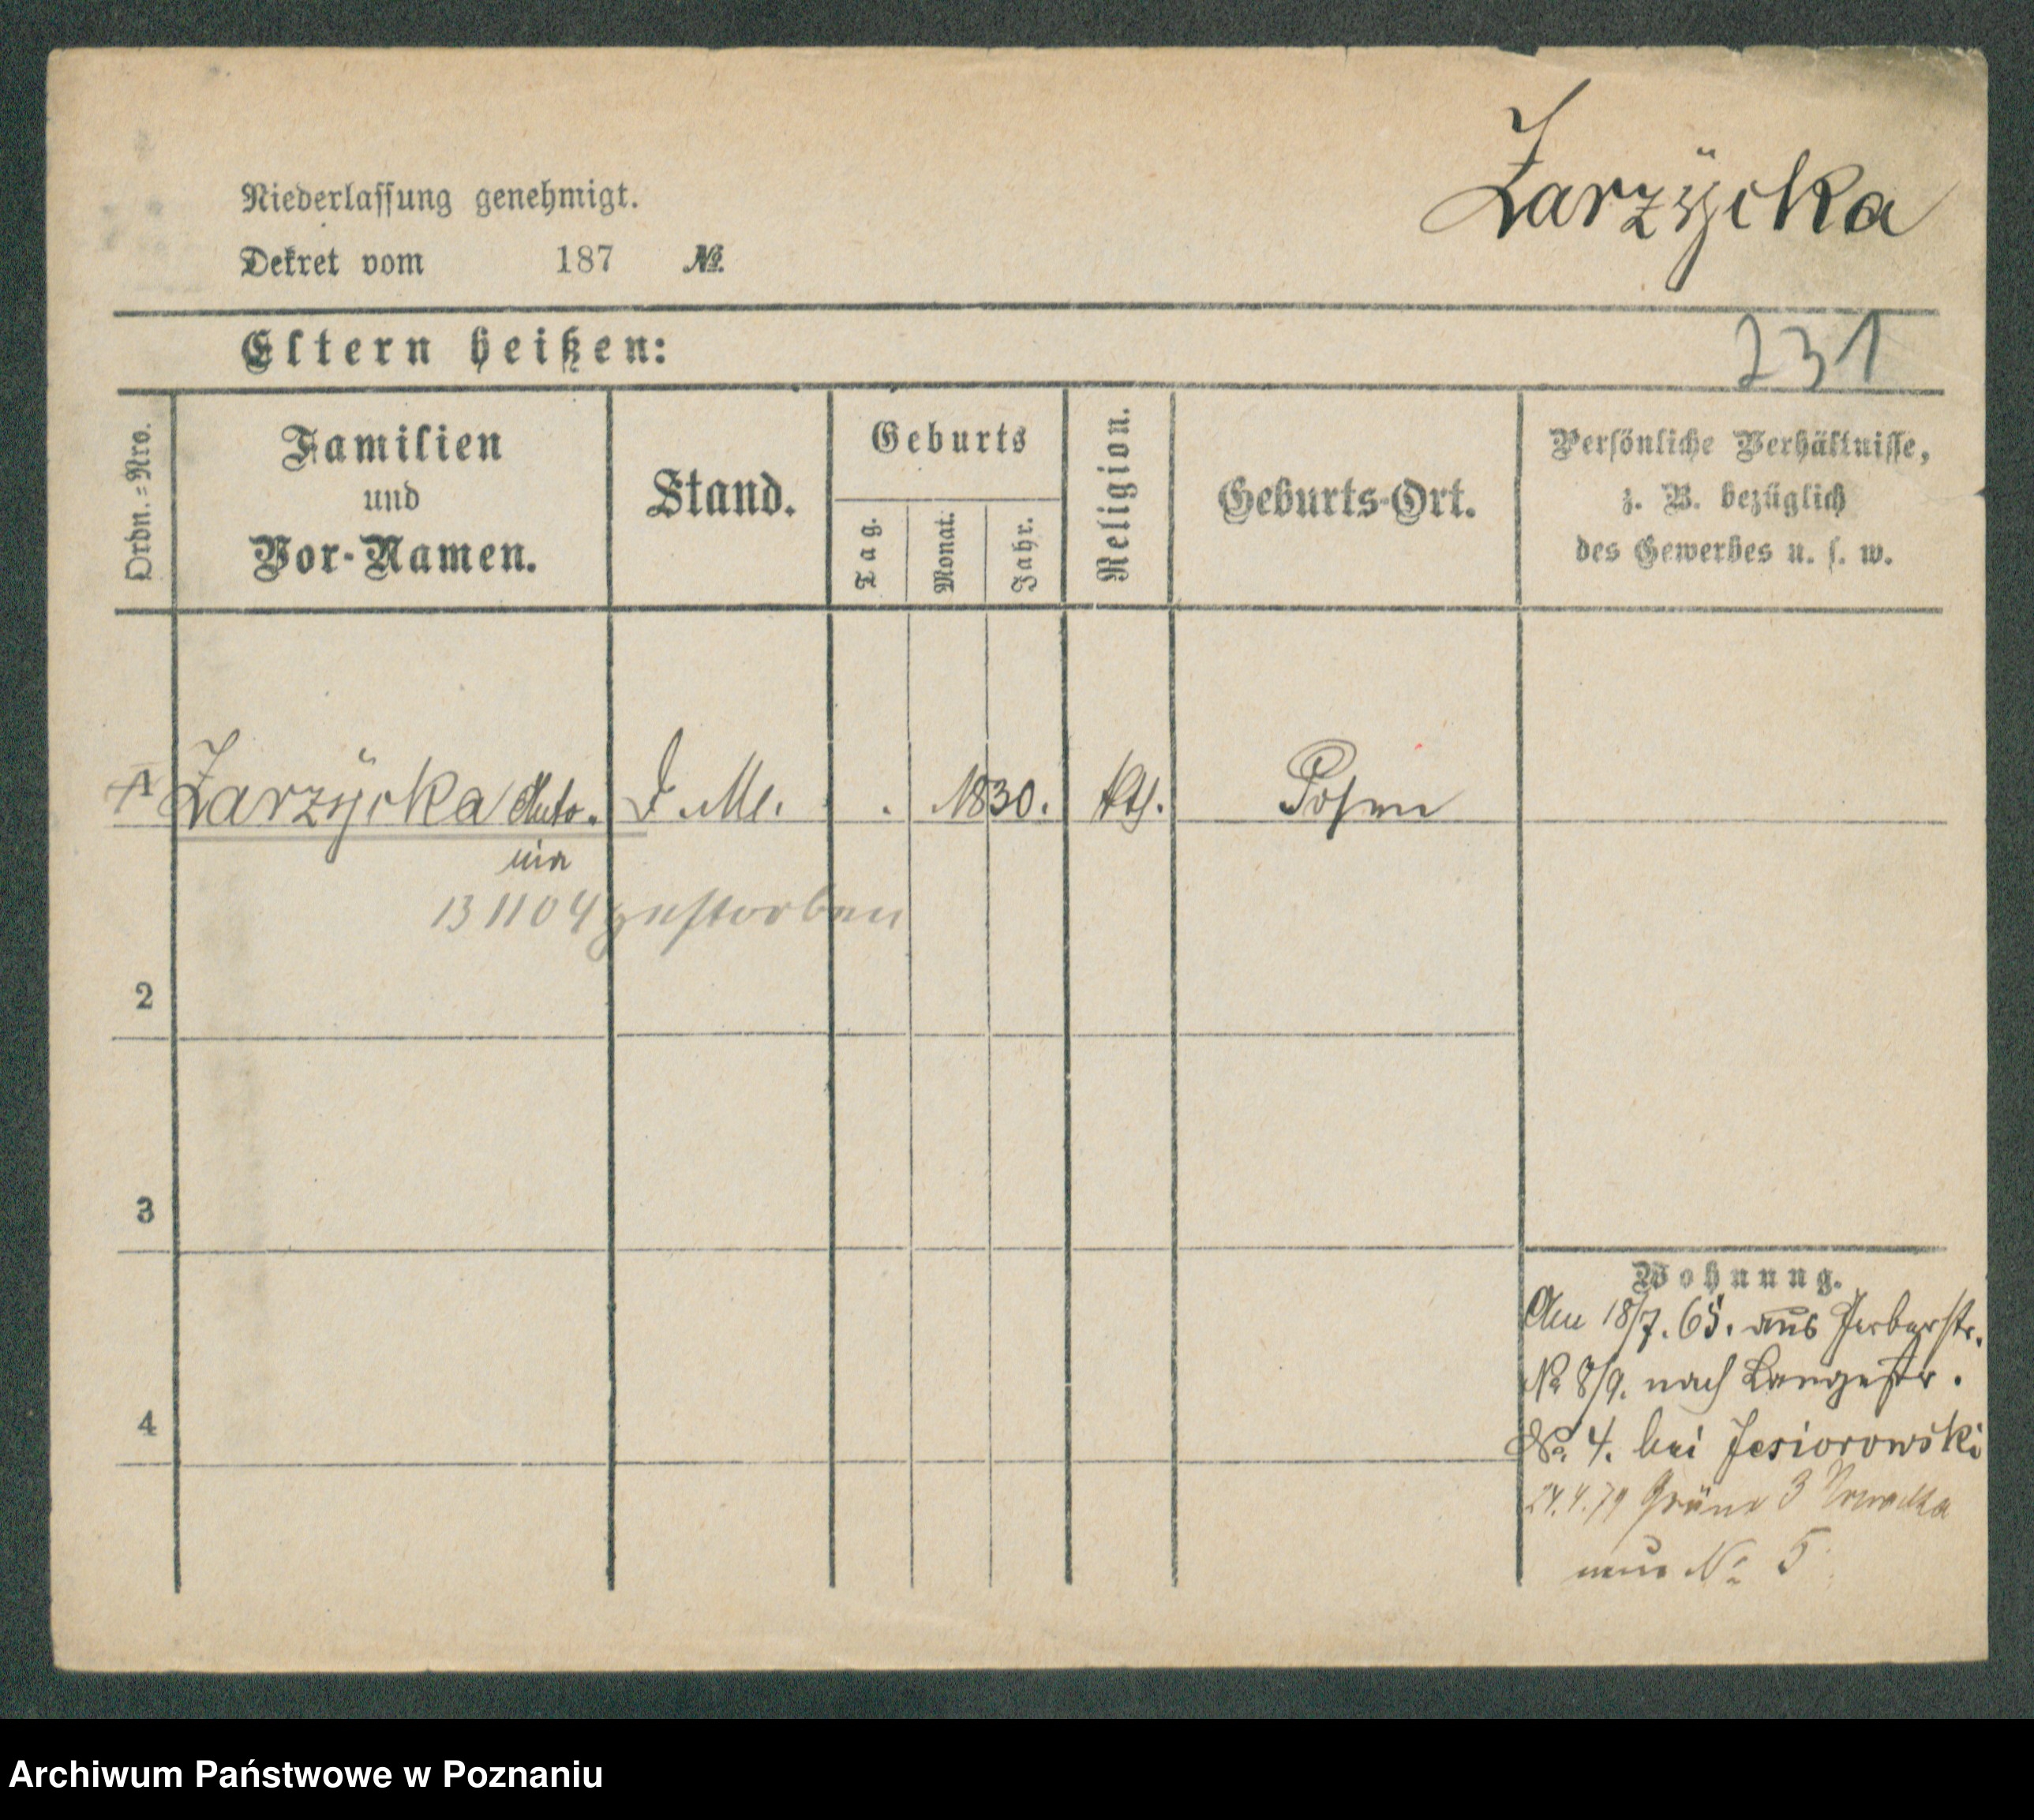 Zarzÿcka
Niederlassung genehmigt.
Dekret vom 187 №
Eltern heißen:
231
Ordn.=Nro.
Familien
und
Vor-Namen.
Stand.
Geburts
Tag.
Monat.
Jahr.
Religion.
Geburts-Ort.
Persönliche Verhältnisse,
z. B. bezüglich
des Gewerbes u. s. w.
1 Zarzÿcka Anto. 1830. kth. Posen
nia
13 11 04 gestorben
2
3
4
Wohnung.
Am 18/7. 65. aus Gerberstr.
№ 8/9. nach Langestr.
№ 4. bei Jesiorowski
24.4.79 Grüne 3
№ 5
Archiwum Państwowe w Poznaniu